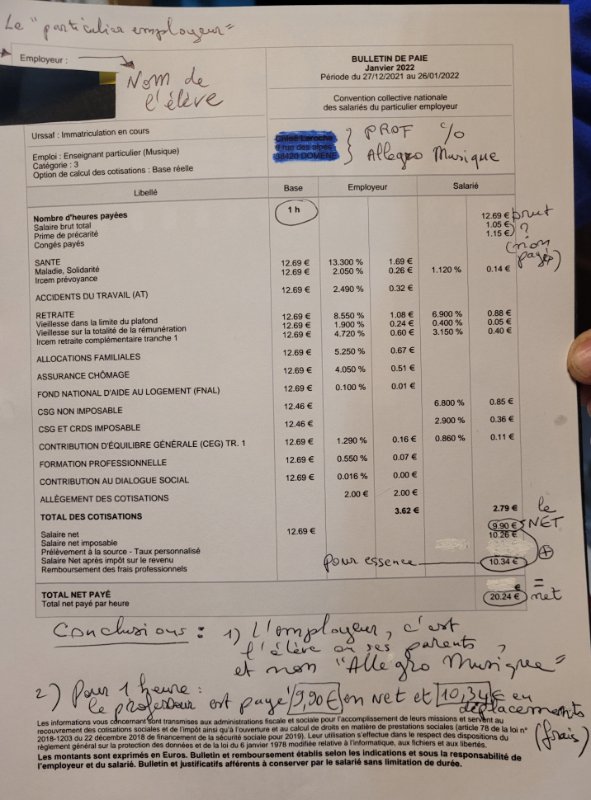 Le "particulier employeur"
Employeur :
Nom de
l'élève
BULLETIN DE PAIE
Janvier 2022
Période du 27/12/2021 au 26/01/2022
Convention collective nationale
des salariés du particulier employeur
Urssaf : Immatriculation en cours
Emploi : Enseignant particulier (Musique)
Catégorie : 3
Option de calcul des cotisations : Base réelle
PROF %
Allegro Musique
Libellé Base Employeur Salarié
Nombre d'heures payées 1 h
Salaire brut total 12.69 € brut
Prime de précarité 1.05 € ?
Congés payés 1.15 € (non payés)
SANTE
Maladie, Solidarité 12.69 € 13.300 % 1.69 €
Ircem prévoyance 12.69 € 2.050 % 0.26 € 1.120 % 0.14 €
ACCIDENTS DU TRAVAIL (AT) 12.69 € 2.490 % 0.32 €
RETRAITE
Vieillesse dans la limite du plafond 12.69 € 8.550 % 1.08 € 6.900 % 0.88 €
Vieillesse sur la totalité de la rémunération 12.69 € 1.900 % 0.24 € 0.400 % 0.05 €
Ircem retraite complémentaire tranche 1 12.69 € 4.720 % 0.60 € 3.150 % 0.40 €
ALLOCATIONS FAMILIALES 12.69 € 5.250 % 0.67 €
ASSURANCE CHÔMAGE 12.69 € 4.050 % 0.51 €
FOND NATIONAL D'AIDE AU LOGEMENT (FNAL) 12.69 € 0.100 % 0.01 €
CSG NON IMPOSABLE 12.46 € 6.800 % 0.85 €
CSG ET CRDS IMPOSABLE 12.46 € 2.900 % 0.36 €
CONTRIBUTION D'ÉQUILIBRE GÉNÉRALE (CEG) TR. 1 12.69 € 1.290 % 0.16 € 0.860 % 0.11 €
FORMATION PROFESSIONNELLE 12.69 € 0.550 % 0.07 €
CONTRIBUTION AU DIALOGUE SOCIAL 12.69 € 0.016 % 0.00 €
ALLÈGEMENT DES COTISATIONS 2.00 € 2.00 €
TOTAL DES COTISATIONS 3.62 € 2.79 €
Salaire net 12.69 € 9.90 € le NET
Salaire net imposable 10.26 €
Prélèvement à la source - Taux personnalisé
Salaire Net après impôt sur le revenu +
Remboursement des frais professionnels pour essence 10.34 €
€ =
TOTAL NET PAYÉ 20.24 € net
Total net payé par heure
Conclusions : 1) L'employeur, c'est
l'élève ou ses parents,
et non "Allegro Musique"
2) Pour 1 heure :
le professeur est payé 9,90€ en net et 10,34€ en
déplacements
(frais)
Les informations vous concernant sont transmises aux administrations fiscale et sociale pour l'accomplissement de leurs missions et servent au
recouvrement des cotisations sociales et de l'impôt ainsi qu'à l'ouverture et au calcul de droits en matière de prestations sociales (article 78 de la loi n°
2018-1203 du 22 décembre 2018 de financement de la sécurité sociale pour 2019). Leur utilisation s'effectue dans le respect des dispositions du
règlement général sur la protection des données et de la loi du 6 janvier 1978 modifiée relative à l'informatique, aux fichiers et aux libertés.
Les montants sont exprimés en Euros. Bulletin et remboursement établis selon les indications et sous la responsabilité de
l'employeur et du salarié. Bulletin et justificatifs afférents à conserver par le salarié sans limitation de durée.